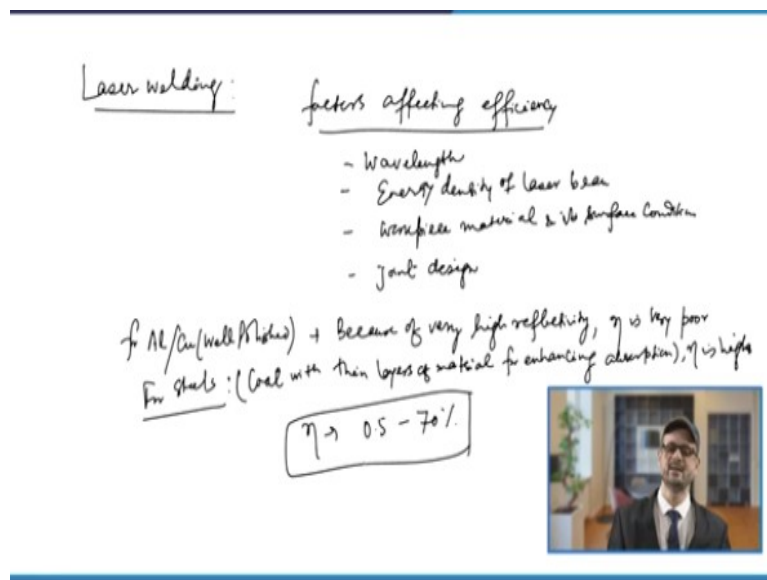 Laser welding:
factors affecting efficiency
- Wavelength
- Energy density of laser beam
- Workpiece material & its surface condition
- Joint design
for Al/Cu (well polished) → Because of very high reflectivity, η is very poor
For steels: (Coat with thin layers of material for enhancing absorption), η is high
η → 0.5 - 70%